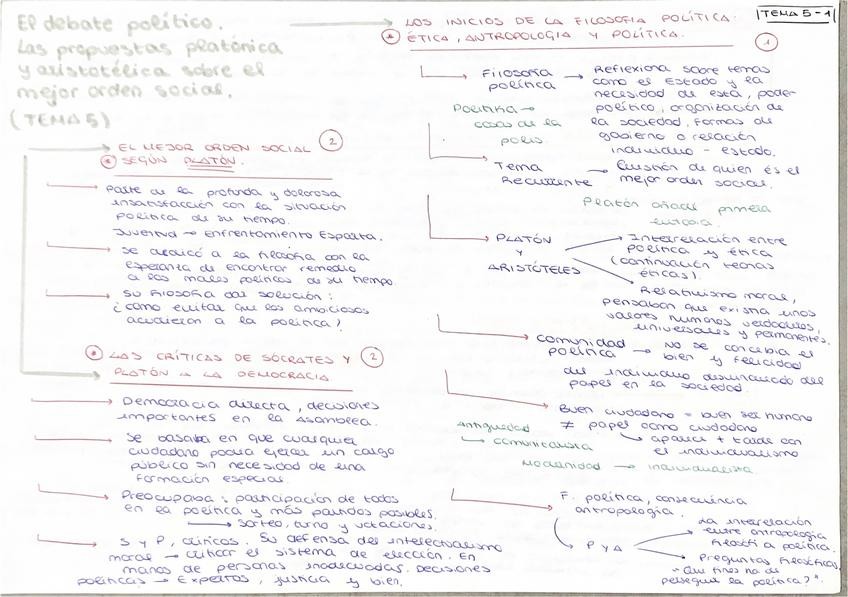 El debate político.
Las propuestas platónica
y aristotélica sobre el
mejor orden social.
(TEMA 5)
TEMA 5 - 1
LOS INICIOS DE LA FILOSOFIA POLÍTICA.
ÉTICA, ANTROPOLOGIA Y POLÍTICA.
1
Filosofía política → Reflexiona sobre temas
como el Estado y la
necesidad de esta, poder
político, organización de
la sociedad, formas de
gobierno o relación
individuo - estado.
Politika →
cosas de la
polis.
Tema
Recurrente → Cuestión de quien es el
mejor orden social.
Platón añade primera
PLATÓN
Y
ARISTÓTELES
Interrelación entre
política y ética
(continuación teorías
éticas).
Relativismo moral,
pensaban que existía unos
valores humanos verdaderos,
universales y permanentes.
Comunidad
política → no se concebía el
bien y felicidad
del individuo desvinculado del
papel en la sociedad.
Buen ciudadano = buen ser humano
≠ papel como ciudadano
aparece + tarde con
el individualismo
Antigüedad
comunitarista
Modernidad → individualista.
F. política, consecuencia
antropología.
P y A
La interrelación
entre antropología
filosófi a política.
Preguntas filosóficas
"Que fines ha de
perseguir la política?".
EL MEJOR ORDEN SOCIAL
SEGÚN PLATÓN.
2
Parte de la profunda y dolorosa
insatisfacción con la situación
política de su tiempo.
Juventud → Enfrentamiento Esparta.
Se dedicó a la filosofía con la
esperanza de encontrar remedio
a los males políticos de su tiempo.
Su filosofía dar solución:
¿como evitar que los ambiciosos
accedieron a la política?
LAS CRÍTICAS DE SÓCRATES Y
PLATÓN A LA DEMOCRACIA
2
Democracia directa, decisiones
importantes en la Asamblea.
Se basaba en que cualquier
ciudadano podía ejercer un cargo
público sin necesidad de una
formación especial.
Preocupaba: participación de todos
en la política y más partidos posibles.
→ Sorteo, turno y votaciones.
S y P, críticos. Su defensa del intelectualismo
moral → criticar el sistema de elección. En
manos de personas inadecuadas. Decisiones
políticas → Expertos, justicia y bien.